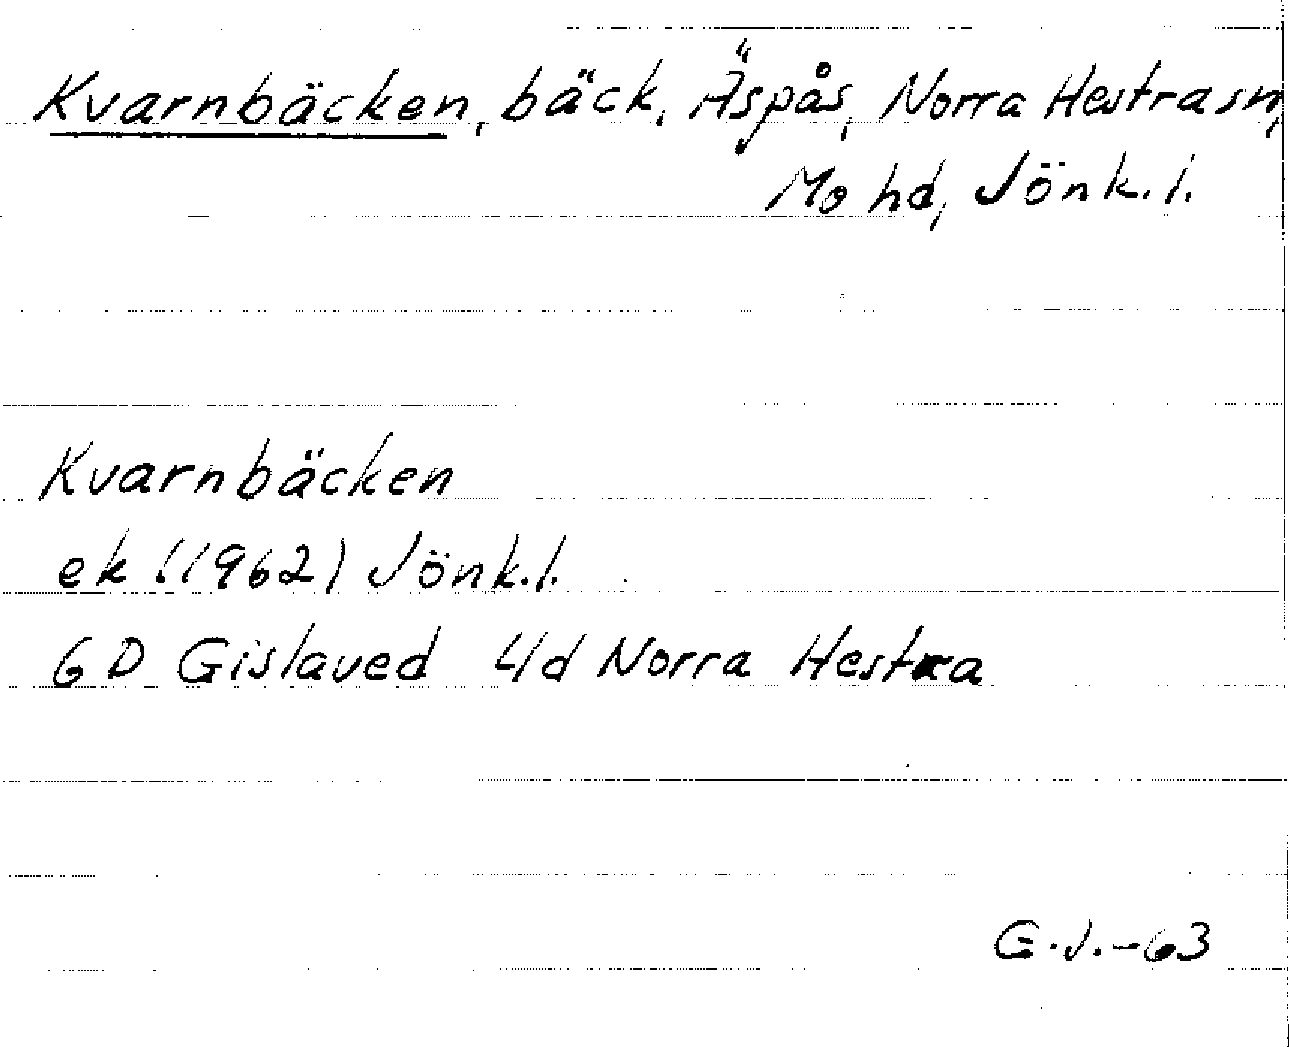 Kvarnbäcken, bäck, Äspås, Norra Hestra sn,
Mo hd, Jönk.l.
Kvarnbäcken
ek (1962) Jönk.l.
6 D Gislaved 4/d Norra Hestra
G.J.-63